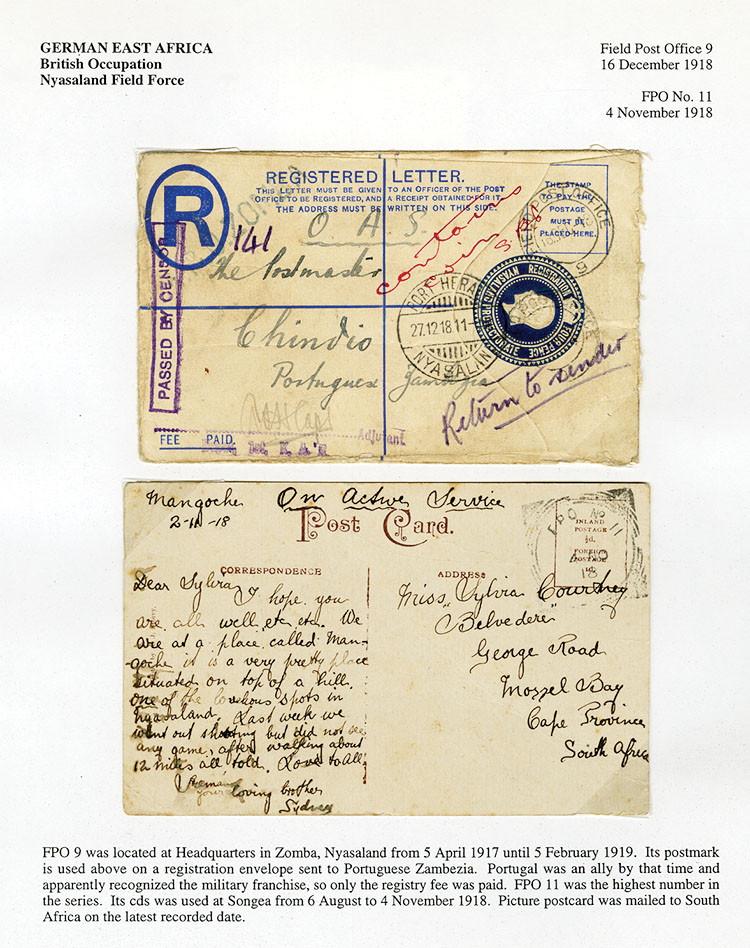 GERMAN EAST AFRICA
British Occupation
Nyasaland Field Force
Field Post Office 9
16 December 1918
FPO No. 11
4 November 1918
R
REGISTERED LETTER.
THIS LETTER MUST BE GIVEN TO AN OFFICER OF THE POST
OFFICE TO BE REGISTERED, AND A RECEIPT OBTAINED FOR IT.
THE ADDRESS MUST BE WRITTEN ON THIS SIDE.
THE STAMP
TO PAY THE
POSTAGE
MUST BE
PLACED HERE.
FIELD POST OFFICE
9
141
O. A. S.
contains
coin
The Postmaster
PASSED BY CENSOR
PORT HERALD
27.12.18.11-
NYASALAND
REGISTRATION
FOUR PENCE
Chindio
Portuguese Zambezia
Return to sender
Adjutant
FEE PAID
K.A.R
Mangoche On Active Service
2-11-18
Post Card.
FPO No 11
4 NO
18
INLAND
POSTAGE
½d.
FOREIGN
POSTAGE
1d.
CORRESPONDENCE
ADDRESS
Dear Sylvia, I hope you
are all well etc etc. We
are at a place called Man-
-goche it is a very pretty place
situated on top of a hill.
One of the spots in
Nyasaland. Last week we
went out shooting but did not see
any game, after walking about
12 miles all told. Love to All,
your loving brother
Sydney
Miss Sylvia Courtney
"Belvedere"
George Road
Mossel Bay
Cape Province
South Africa
FPO 9 was located at Headquarters in Zomba, Nyasaland from 5 April 1917 until 5 February 1919. Its postmark
is used above on a registration envelope sent to Portuguese Zambezia. Portugal was an ally by that time and
apparently recognized the military franchise, so only the registry fee was paid. FPO 11 was the highest number in
the series. Its cds was used at Songea from 6 August to 4 November 1918. Picture postcard was mailed to South
Africa on the latest recorded date.